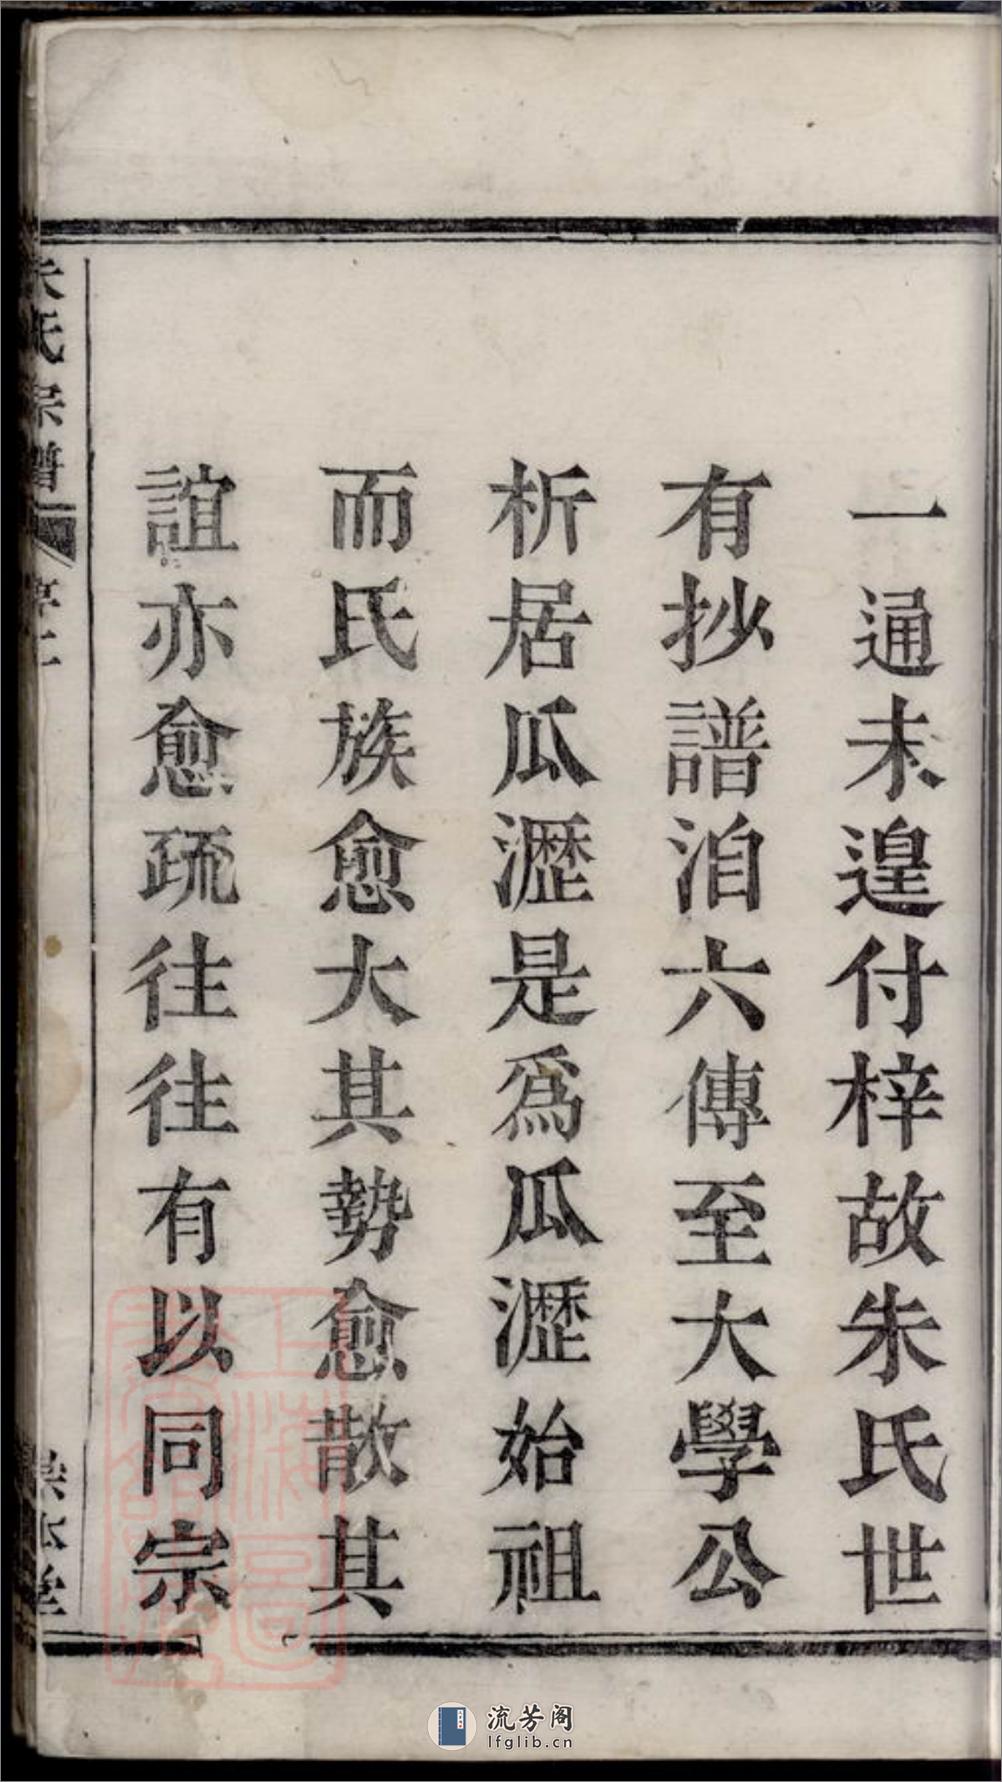 一通未遑付梓故朱氏世
有抄譜洎六傳至大學公
析居瓜瀝是爲瓜瀝始祖
而氏族愈大其勢愈散其
誼亦愈疏往往有以同宗
朱氏宗譜
序二
流芳阁
lfglib.cn